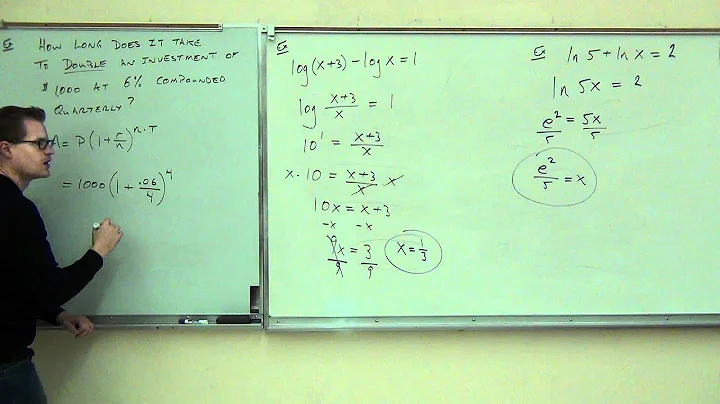 Ex How long does it take
to double an investment of
$1000 at 6% compounded
quarterly?
A = P(1 + r/n)^n·T
= 1000(1 + .06/4)^4
Ex
log(x+3) - log x = 1
log (x+3)/x = 1
10^1 = (x+3)/x
x · 10 = (x+3)/x · x
10x = x+3
-x -x
9x/9 = 3/9
x = 1/3
Ex ln 5 + ln x = 2
ln 5x = 2
e^2/5 = 5x/5
e^2/5 = x